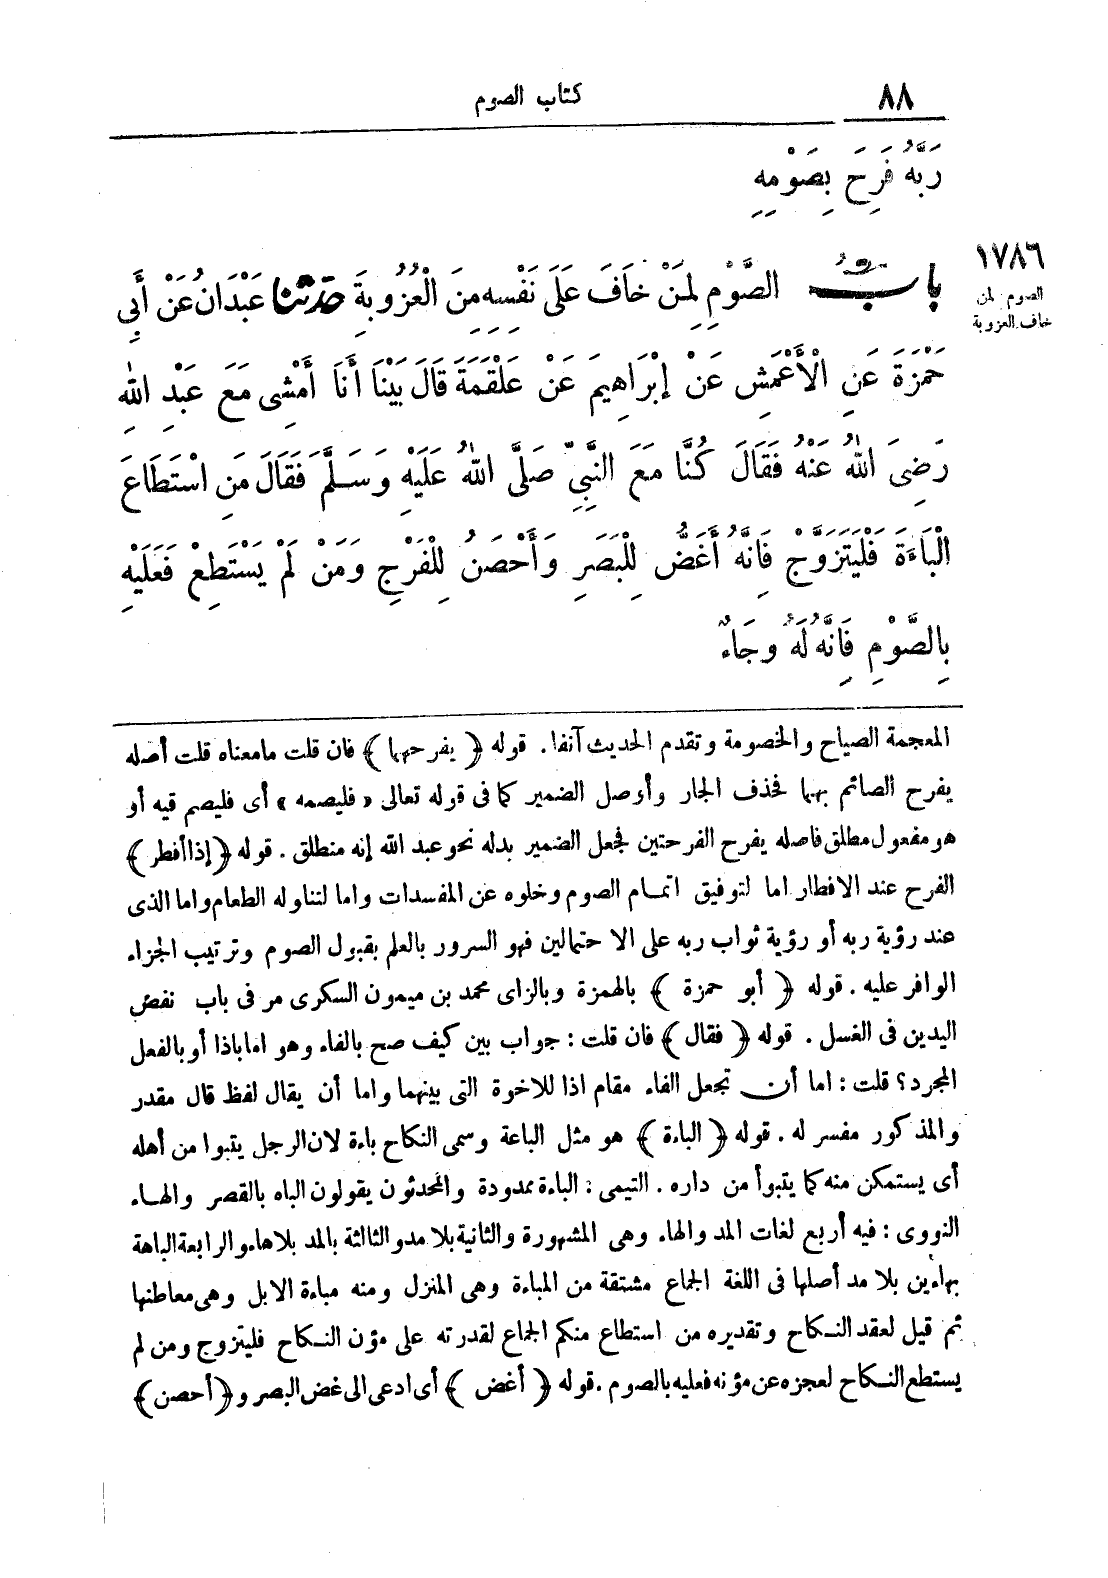 ٨٨
كتاب الصوم
رَبَّهُ فَرِحَ بِصَوْمِهِ
١٧٨٦
الصوم لمن
خاف العزوبة
بَابُ الصَّوْمِ لِمَنْ خَافَ عَلَى نَفْسِهِ مِنَ الْعُزُوبَةِ حَدَّثَنَا عَبْدَانُ عَنْ أَبِي
حَمْزَةَ عَنِ الْأَعْمَشِ عَنْ إِبْرَاهِيمَ عَنْ عَلْقَمَةَ قَالَ بَيْنَا أَنَا أَمْشِى مَعَ عَبْدِ اللهِ
رَضِىَ اللهُ عَنْهُ فَقَالَ كُنَّا مَعَ النَّبِيِّ صَلَّى اللهُ عَلَيْهِ وَسَلَّمَ فَقَالَ مَنِ اسْتَطَاعَ
الْبَاءَةَ فَلْيَتَزَوَّجْ فَإِنَّهُ أَغَضُّ لِلْبَصَرِ وَأَحْصَنُ لِلْفَرْجِ وَمَنْ لَمْ يَسْتَطِعْ فَعَلَيْهِ
بِالصَّوْمِ فَإِنَّهُ لَهُ وِجَاءٌ
المعجمة الصياح والخصومة وتقدم الحديث آنفا. قوله ﴿يفرحهما﴾ فان قلت مامعناه قلت أصله
يفرح الصائم بهما فحذف الجار وأوصل الضمير كما فى قوله تعالى «فليصمه» أى فليصم فيه أو
هو مفعول مطلق فاصله يفرح الفرحتين فجعل الضمير بدله نحو عبد الله إنه منطلق. قوله ﴿إذا أفطر﴾
الفرح عند الافطار اما لتوفيق اتمام الصوم وخلوه عن المفسدات واما لتناوله الطعام واما الذى
عند رؤية ربه أو رؤية ثواب ربه على الاحتمالين فهو السرور بالعلم بقبول الصوم وترتيب الجزاء
الوافر عليه. قوله ﴿أبو حمزة﴾ بالهمزة وبالزاى محمد بن ميمون السكرى مر فى باب نفض
اليدين فى الغسل. قوله ﴿فقال﴾ فان قلت: جواب بين كيف صح بالفاء وهو اما باذا أو بالفعل
المجرد؟ قلت: اما أن تجعل الفاء مقام اذا للاخوة التى بينهما واما أن يقال لفظ قال مقدر
والمذكور مفسر له. قوله ﴿الباءة﴾ هو مثل الباعة وسمى النكاح باءة لان الرجل يتبوا من أهله
أى يستمكن منه كما يتبوأ من داره. التيمى: الباءة ممدودة والمحدثون يقولون الباه بالقصر والهاء
النووى: فيه أربع لغات المد والهاء وهى المشهورة والثانية بلا مد والثالثة بالمد بلا هاء والرابعة الباهة
بهاءين بلا مد أصلها فى اللغة الجماع مشتقة من المباءة وهى المنزل ومنه مباءة الابل وهى معاطنها
ثم قيل لعقد النكاح وتقديره من استطاع منكم الجماع لقدرته على مؤن النكاح فليتزوج ومن لم
يستطع النكاح لعجزه عن مؤنه فعليه بالصوم. قوله ﴿أغض﴾ أى ادعى الى غض البصر و﴿أحصن﴾